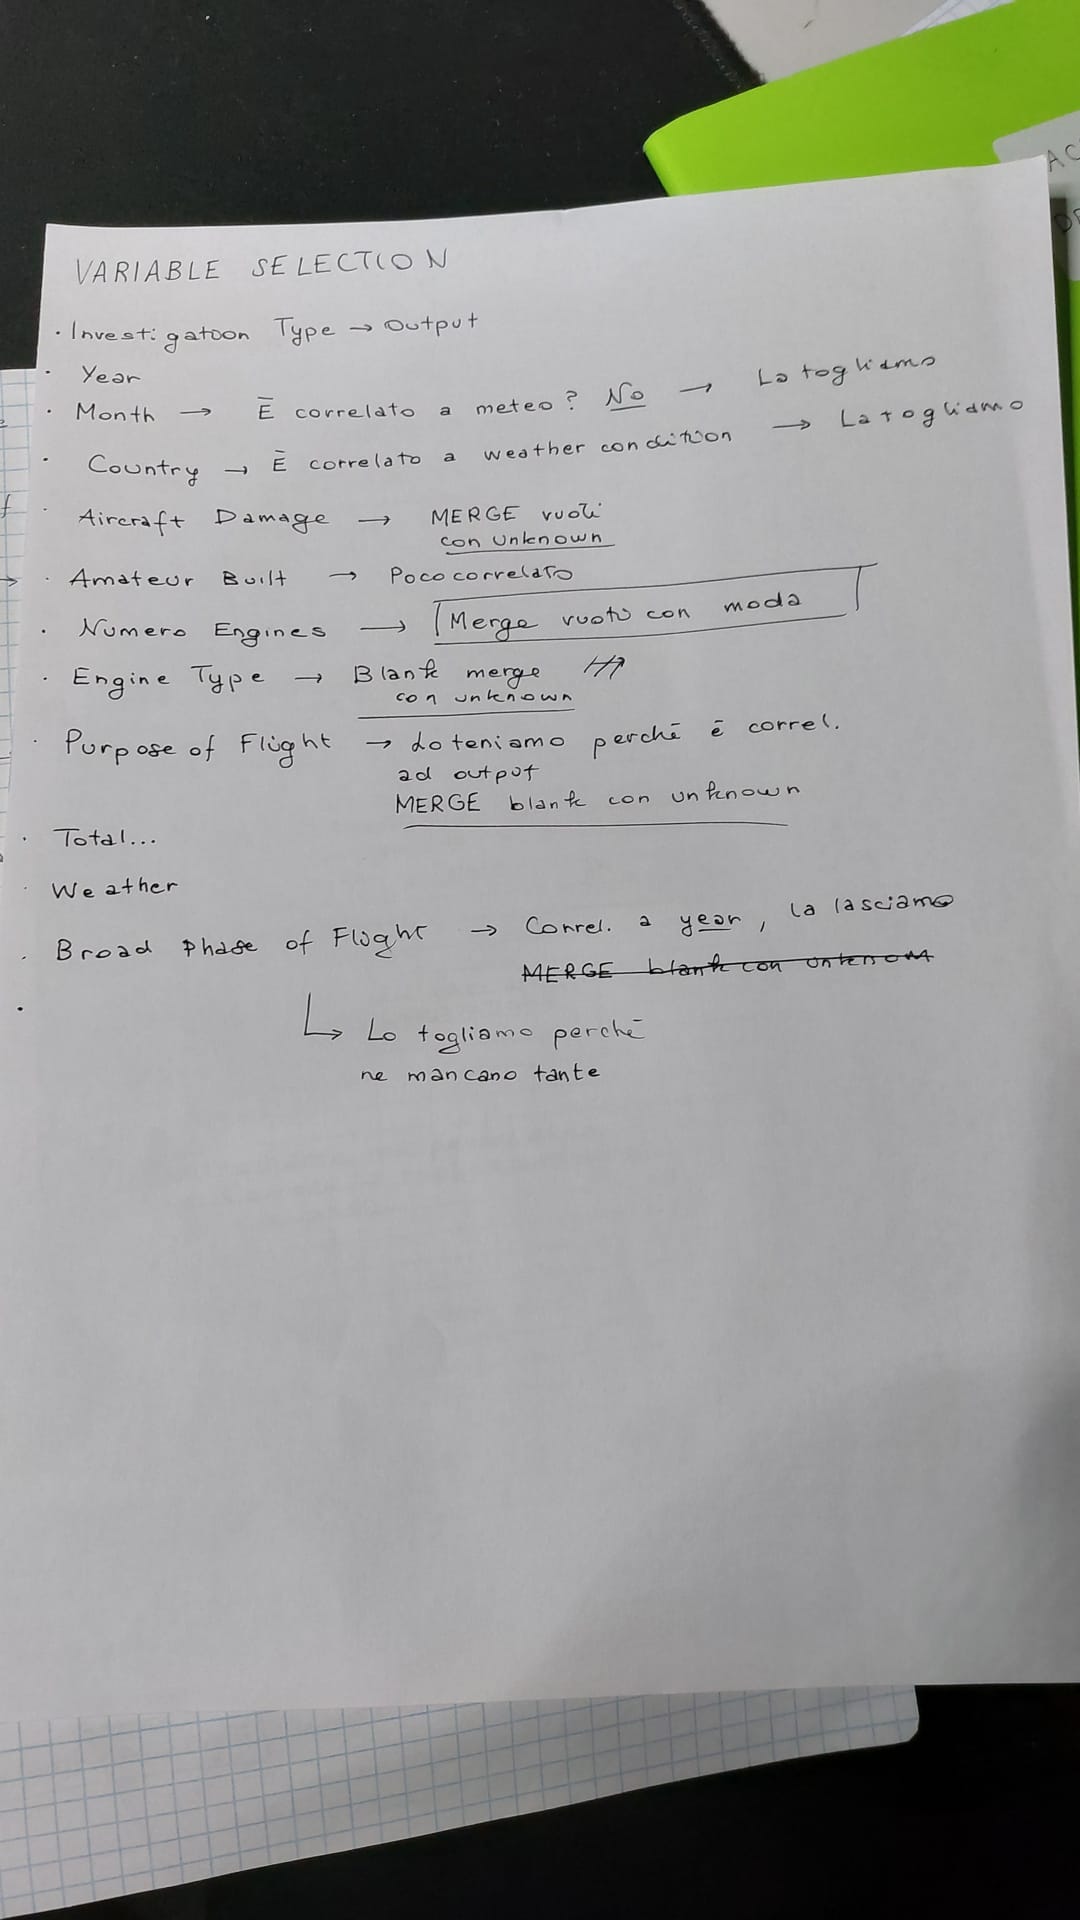 VARIABLE SELECTION
· Investigatoon Type → Output
· Year
· Month → È correlato a meteo? No → La togliamo
· Country → È correlato a weather condition → La togliamo
· Aircraft Damage → MERGE vuoti
con unknown
· Amateur Built → Poco correlato
· Numero Engines → Merge vuoti con moda
· Engine Type → Blank merge
con unknown
· Purpose of Flight → lo teniamo perché è correl.
ad output
MERGE blank con unknown
· Total...
· Weather
· Broad Phase of Flight → Correl. a year, la lasciamo
MERGE blank con unknown
·
↳ Lo togliamo perché
ne mancano tante
AC